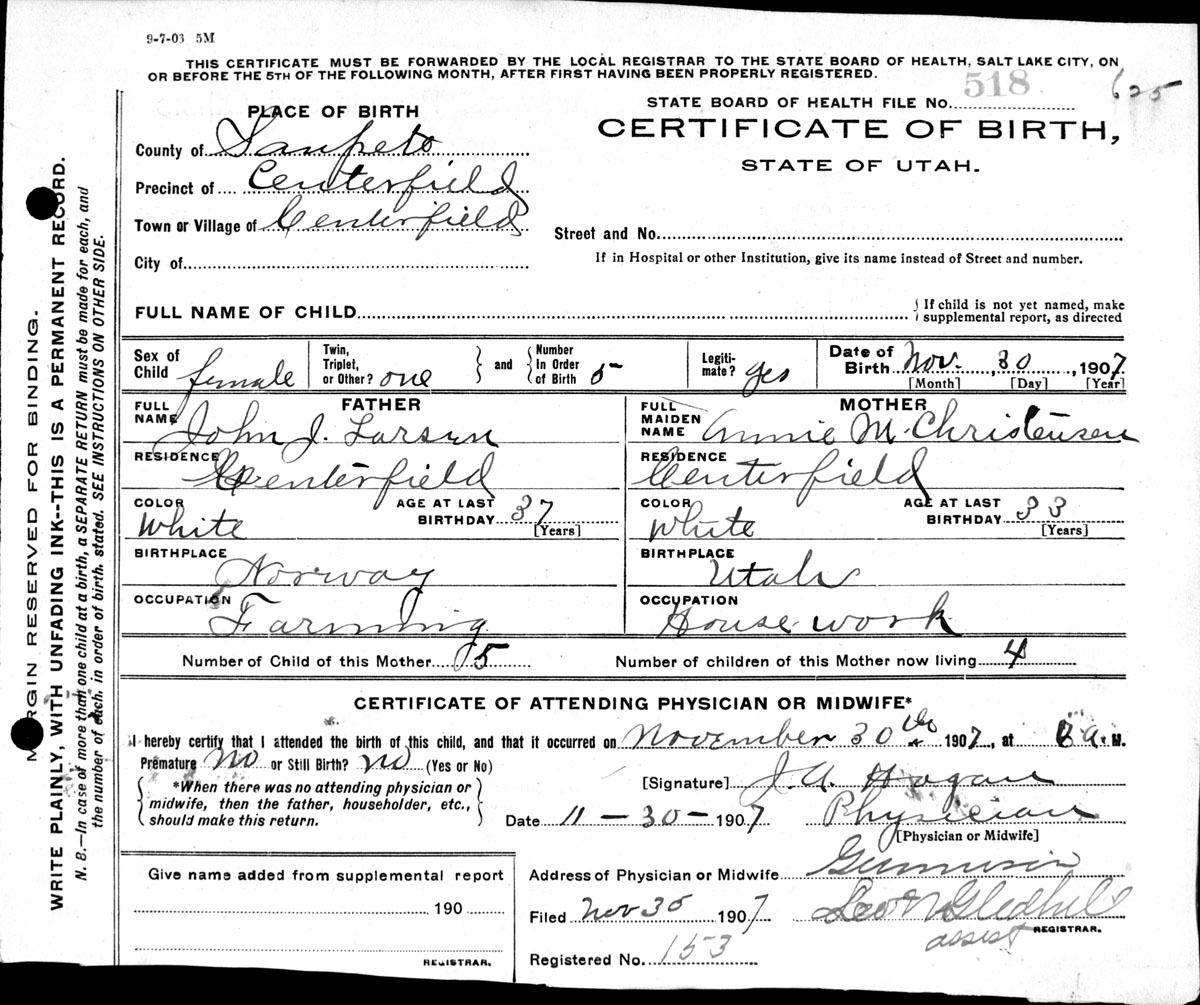 9-7-03 5M
THIS CERTIFICATE MUST BE FORWARDED BY THE LOCAL REGISTRAR TO THE STATE BOARD OF HEALTH, SALT LAKE CITY, ON
OR BEFORE THE 5TH OF THE FOLLOWING MONTH, AFTER FIRST HAVING BEEN PROPERLY REGISTERED.
STATE BOARD OF HEALTH FILE NO. 518 625
CERTIFICATE OF BIRTH,
STATE OF UTAH.
PLACE OF BIRTH
County of Sanpete
Precinct of Centerfield
Town or Village of Centerfield
City of
Street and No.
If in Hospital or other Institution, give its name instead of Street and number.
FULL NAME OF CHILD
If child is not yet named, make
supplemental report, as directed
Sex of Child female
Twin, Triplet, or Other? one
and
Number In Order of Birth 5
Legiti-mate? yes
Date of Birth Nov. 30, 1907
[Month] [Day] [Year]
FATHER
FULL NAME John J. Larsen
RESIDENCE Centerfield
COLOR White
AGE AT LAST BIRTHDAY 37
[Years]
BIRTHPLACE Norway
OCCUPATION Farming
MOTHER
FULL MAIDEN NAME Annie M. Christensen
RESIDENCE Centerfield
COLOR White
AGE AT LAST BIRTHDAY 33
[Years]
BIRTHPLACE Utah
OCCUPATION House work
Number of Child of this Mother 5
Number of children of this Mother now living 4
CERTIFICATE OF ATTENDING PHYSICIAN OR MIDWIFE*
I hereby certify that I attended the birth of this child, and that it occurred on November 30th 1907, at 8 A. M.
Premature No or Still Birth? No (Yes or No)
*When there was no attending physician or
midwife, then the father, householder, etc.,
should make this return.
[Signature] J. A. Hagan
Date 11-30-1907 Physician
[Physician or Midwife]
Address of Physician or Midwife Gunnison
Filed Nov 30 1907 Leo N Gledhill
assist REGISTRAR.
Registered No. 153
Give name added from supplemental report
190
REGISTRAR.
MARGIN RESERVED FOR BINDING.
WRITE PLAINLY, WITH UNFADING INK--THIS IS A PERMANENT RECORD.
N. B.—In case of more than one child at a birth, a SEPARATE RETURN must be made for each, and
the number of each, in order of birth, stated. SEE INSTRUCTIONS ON OTHER SIDE.